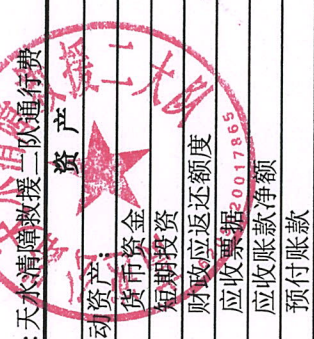 :天水清障救援二队通行费
资 产
动资产:
货币资金
短期投资
财政应返还额度
应收票据
应收账款净额
预付账款
20017865